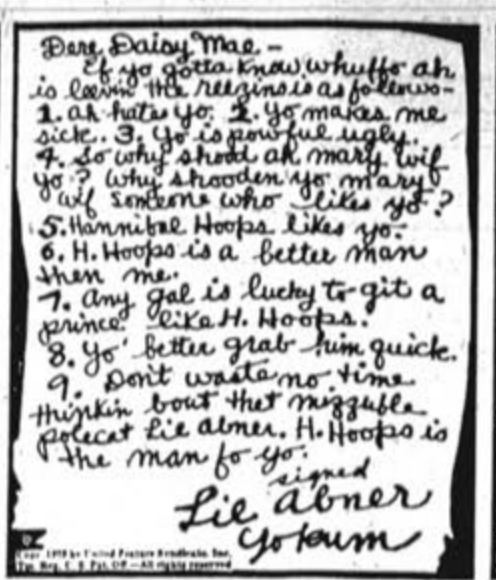 Dere Daisy Mae -
Ef yo gotta know whuffo ah
is leevin the reezins is as follows -
1. ah hates yo. 2. yo makes me
sick. 3. Yo is powful ugly.
4. So why shood ah mary wif
yo? Why shooden yo mary
wif someone who likes yo?
5. Hannibal Hoops likes yo.
6. H. Hoops is a better man
then me.
7. Any gal is lucky to git a
prince like H. Hoops.
8. Yo' better grab him quick.
9. Don't waste no time
thinkin bout thet mizzuble
polecat Lil abner. H. Hoops is
the man fo yo.
signed
Lil abner
Yokum
by United Feature Syndicate, Inc.
Reg. U. S. Pat. Off.—All rights reserved